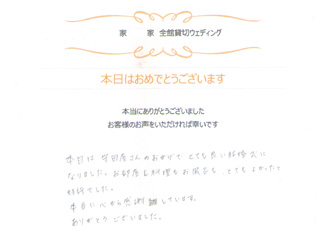 家 家 全館貸切ウェディング
本日はおめでとうございます
本当にありがとうございました
お客様のお声をいただければ幸いです
本日は 屋さんのおかげで とても良い結婚式に
なりました。お部屋もお料理もお風呂も とてもよかったで
本日に心から感謝しています。
ありがとうございました。